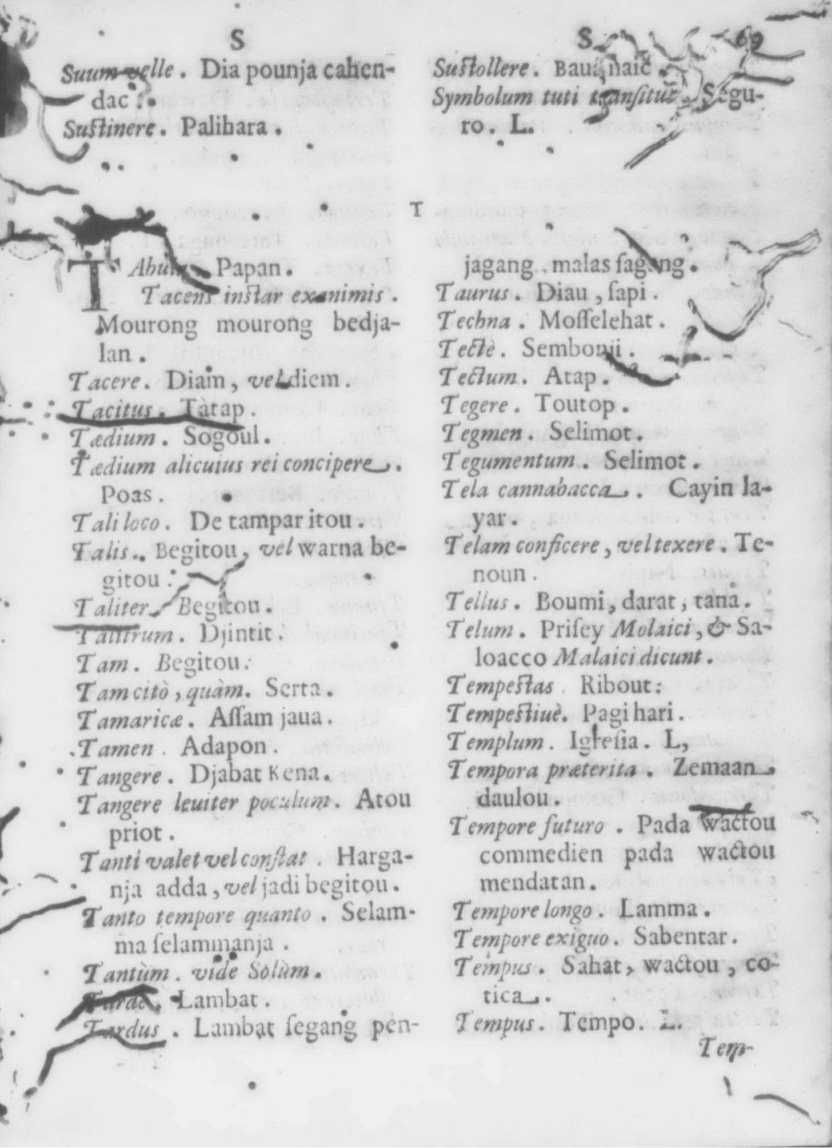 S
Suum velle. Dia pounja cahen-
dac.
Sustinere. Palihara.
S 69
Sustollere. Baua naic.
Symbolum tuti transitus. Segu-
ro. L.
T
TAbula. Papan.
Tacens instar exanimis.
Mourong mourong bedja-
lan.
Tacere. Diam, vel diem.
Tacitus. Tatap.
Tædium. Sogoul.
Tædium alicuius rei concipere.
Poas.
Tali loco. De tampar itou.
Talis. Begitou, vel warna be-
gitou.
Taliter. Begitou.
Talitrum. Djintit.
Tam. Begitou.
Tam citò, quàm. Serta.
Tamaricæ. Aſſam jaua.
Tamen. Adapon.
Tangere. Djabat Kena.
Tangere leuiter poculum. Atou
priot.
Tanti valet vel conſtat. Harga-
nja adda, vel jadi begitou.
Tanto tempore quanto. Selam-
ma ſelammanja.
Tantùm. vide Solùm.
Tardè. Lambat.
Tardus. Lambat ſegang pen-
jagang, malas ſagang.
Taurus. Diau, ſapi.
Techna. Moſſelehat.
Tectè. Sembonji.
Tectum. Atap.
Tegere. Toutop.
Tegmen. Selimot.
Tegumentum. Selimot.
Tela cannabacca. Cayin la-
yar.
Telam conficere, vel texere. Te-
noun.
Tellus. Boumi, darat, tana.
Telum. Priſey Molaici, & Sa-
loacco Malaici dicunt.
Tempestas. Ribout:
Tempeſtiuè. Pagi hari.
Templum. Igreſia. L,
Tempora præterita. Zemaan
daulou.
Tempore futuro. Pada wactou
commedien pada wactou
mendatan.
Tempore longo. Lamma.
Tempore exiguo. Sabentar.
Tempus. Sahat, wactou, co-
tica.
Tempus. Tempo. L.
Tem-